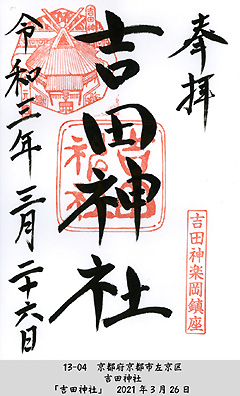 奉拝
吉田神社
令和三年三月二十六日
吉田神楽岡鎮座
13-04 京都府京都市左京区
吉田神社
「吉田神社」 2021年3月26日